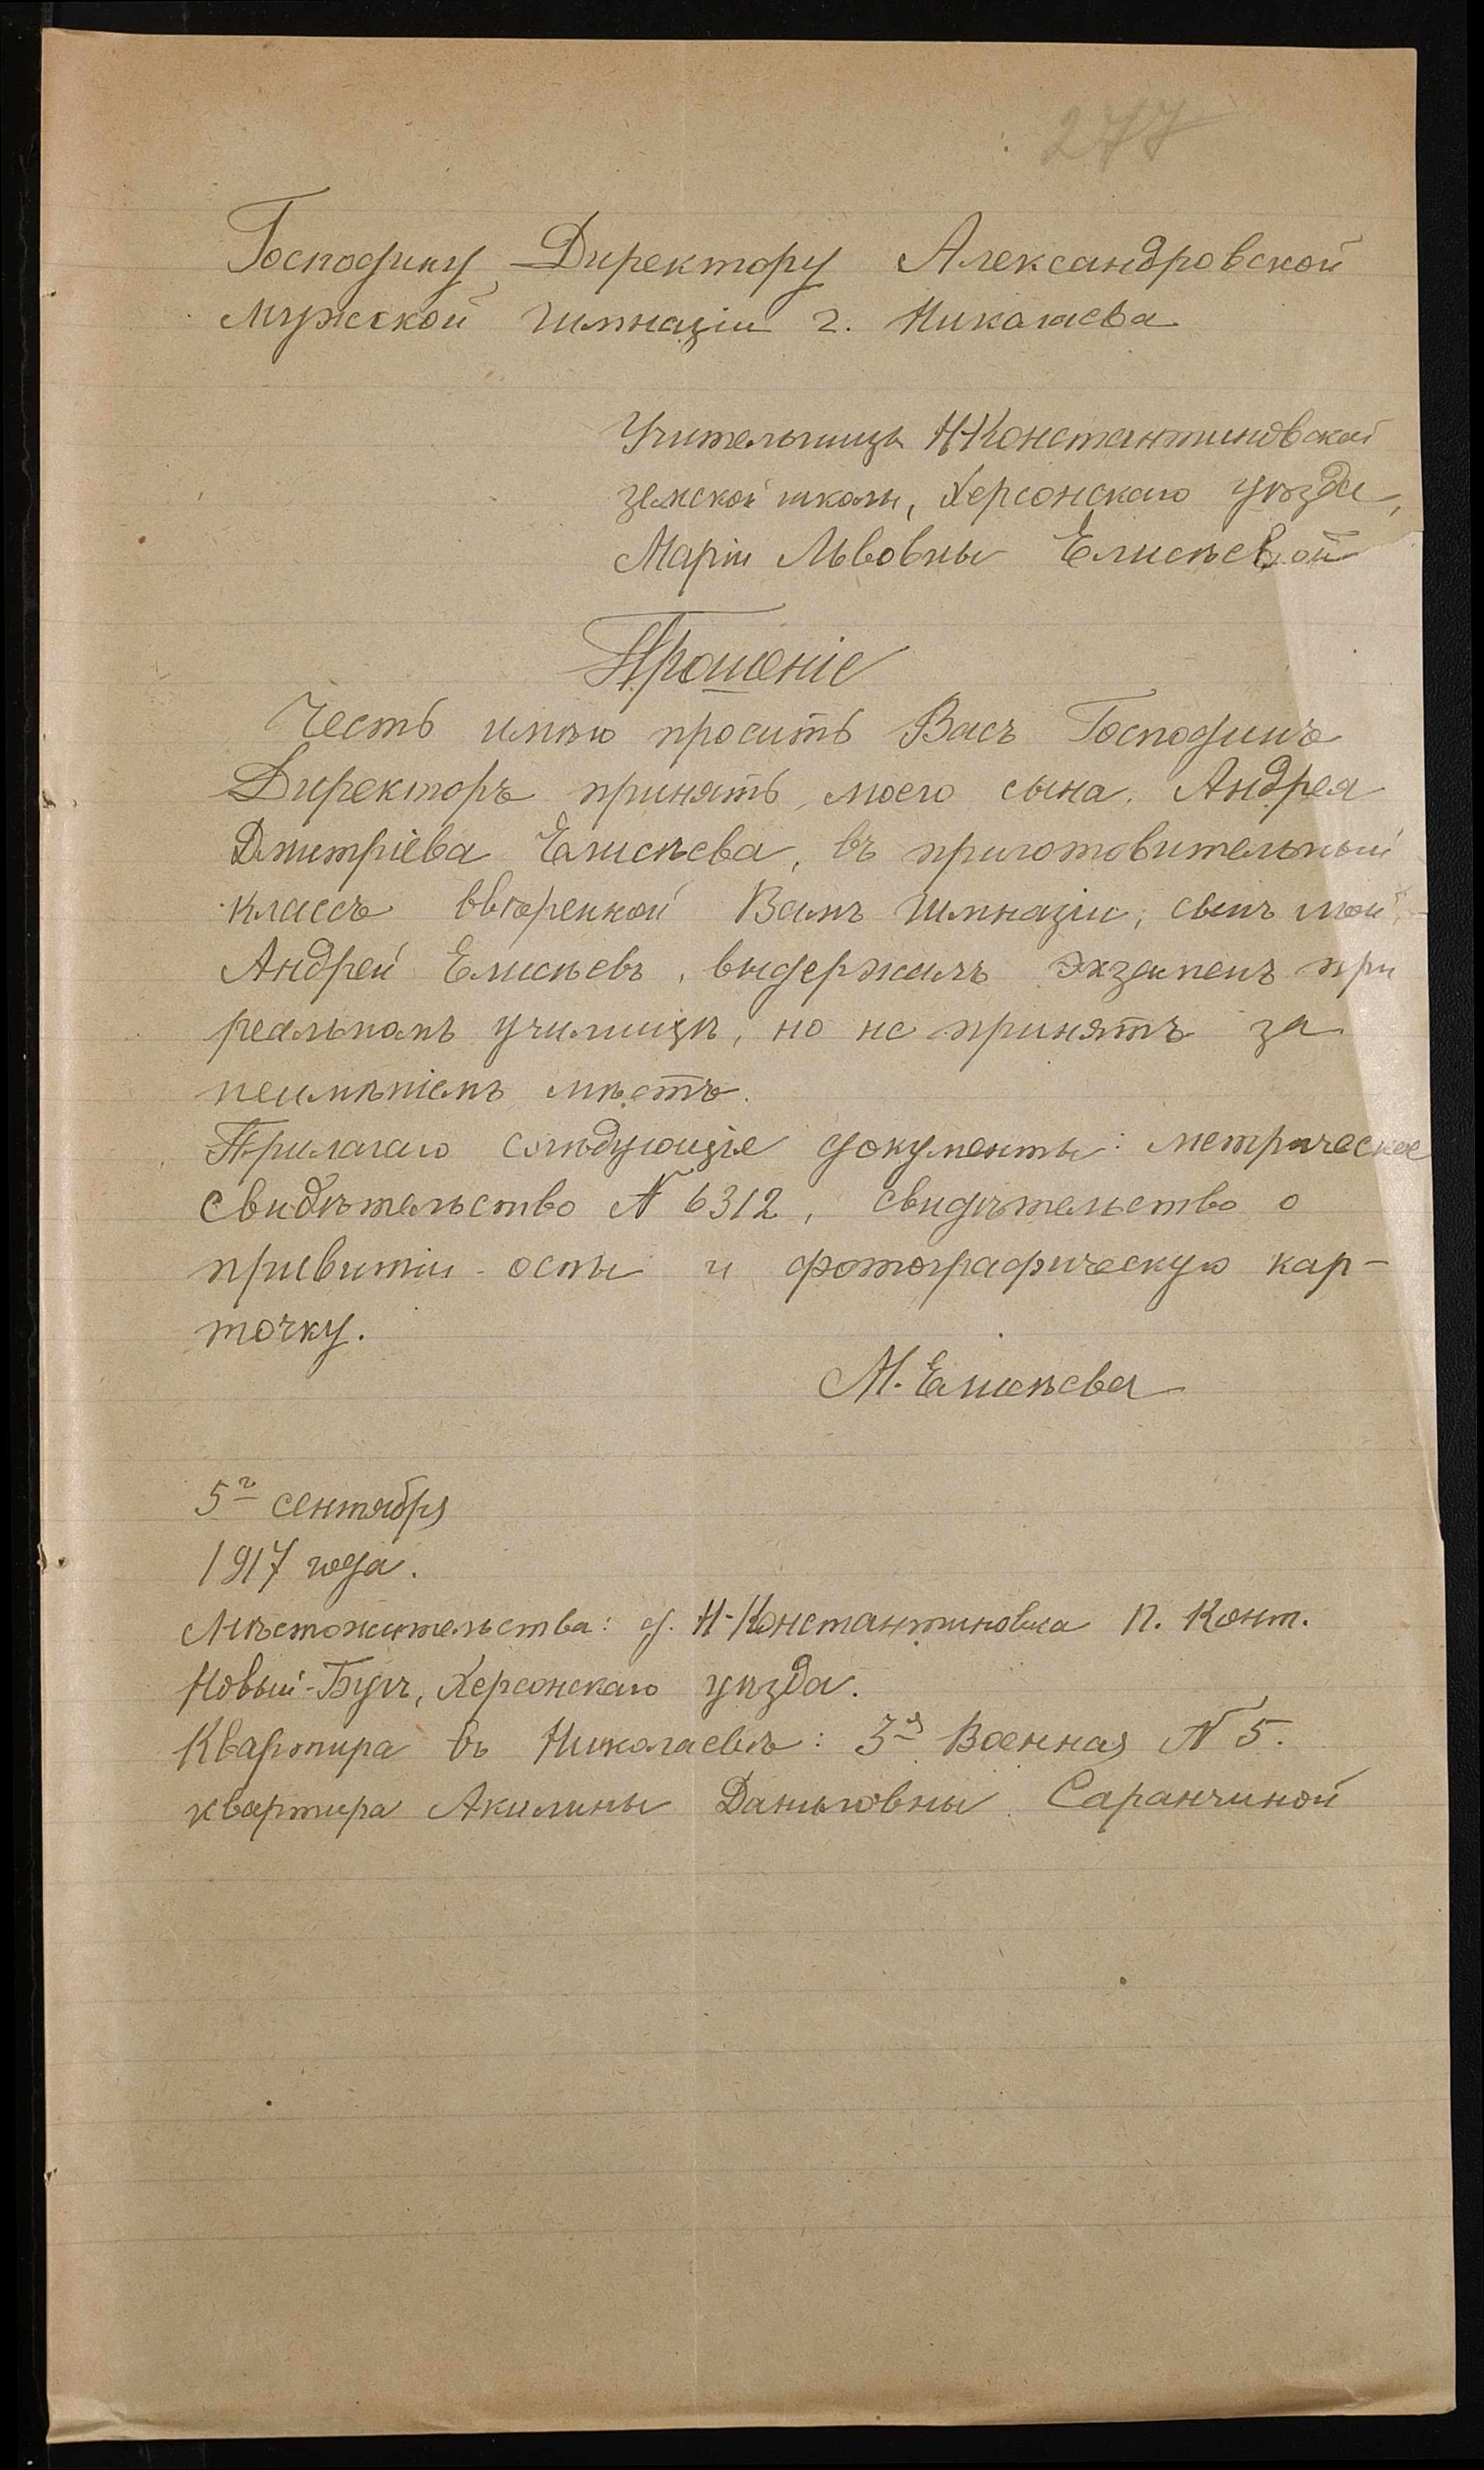 277
Господину Директору Александровской
мужской гимназіи г. Николаева
Учительницы Н-Константиновской
земской школы, Херсонскаго уѣзда,
Маріи Львовны Елисѣевой
Прошеніе
Честь имѣю просить Васъ Господинъ
Директоръ принять моего сына, Андрея
Дмитріева Елисѣева, въ приготовительный
классъ ввѣренной Вамъ гимназіи, сынъ мой
Андрей Елисѣевъ, выдержалъ экзаменъ при
реальномъ училищѣ, но не принятъ за
неимѣніемъ мѣстъ.
Прилагаю слѣдующіе документы: метрическое
свидѣтельство № 6312, свидѣтельство о
привитіи оспы и фотографическую кар-
точку.
М. Елисѣева
5г сентября
1917 года.
Мѣстожительства: д. Н-Константиновка п. Конт.
Новый-Бугъ, Херсонскаго уѣзда.
Квартира въ Николаевѣ: 3я Военная № 5.
квартира Акилины Даниловны Саранчиной